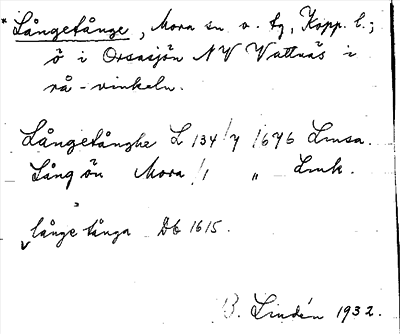 *Långetånge, Mora sn o. tg, Kopp. l.;
ö i Orsasjön NV Vattnäs i
rå-vinkeln.
Långetånghe L 134/7 1646 Lmsa.
Lång ön Mora 1/1 " Lmk.
långe tånga Db 1615.
B. Lindén 1932.